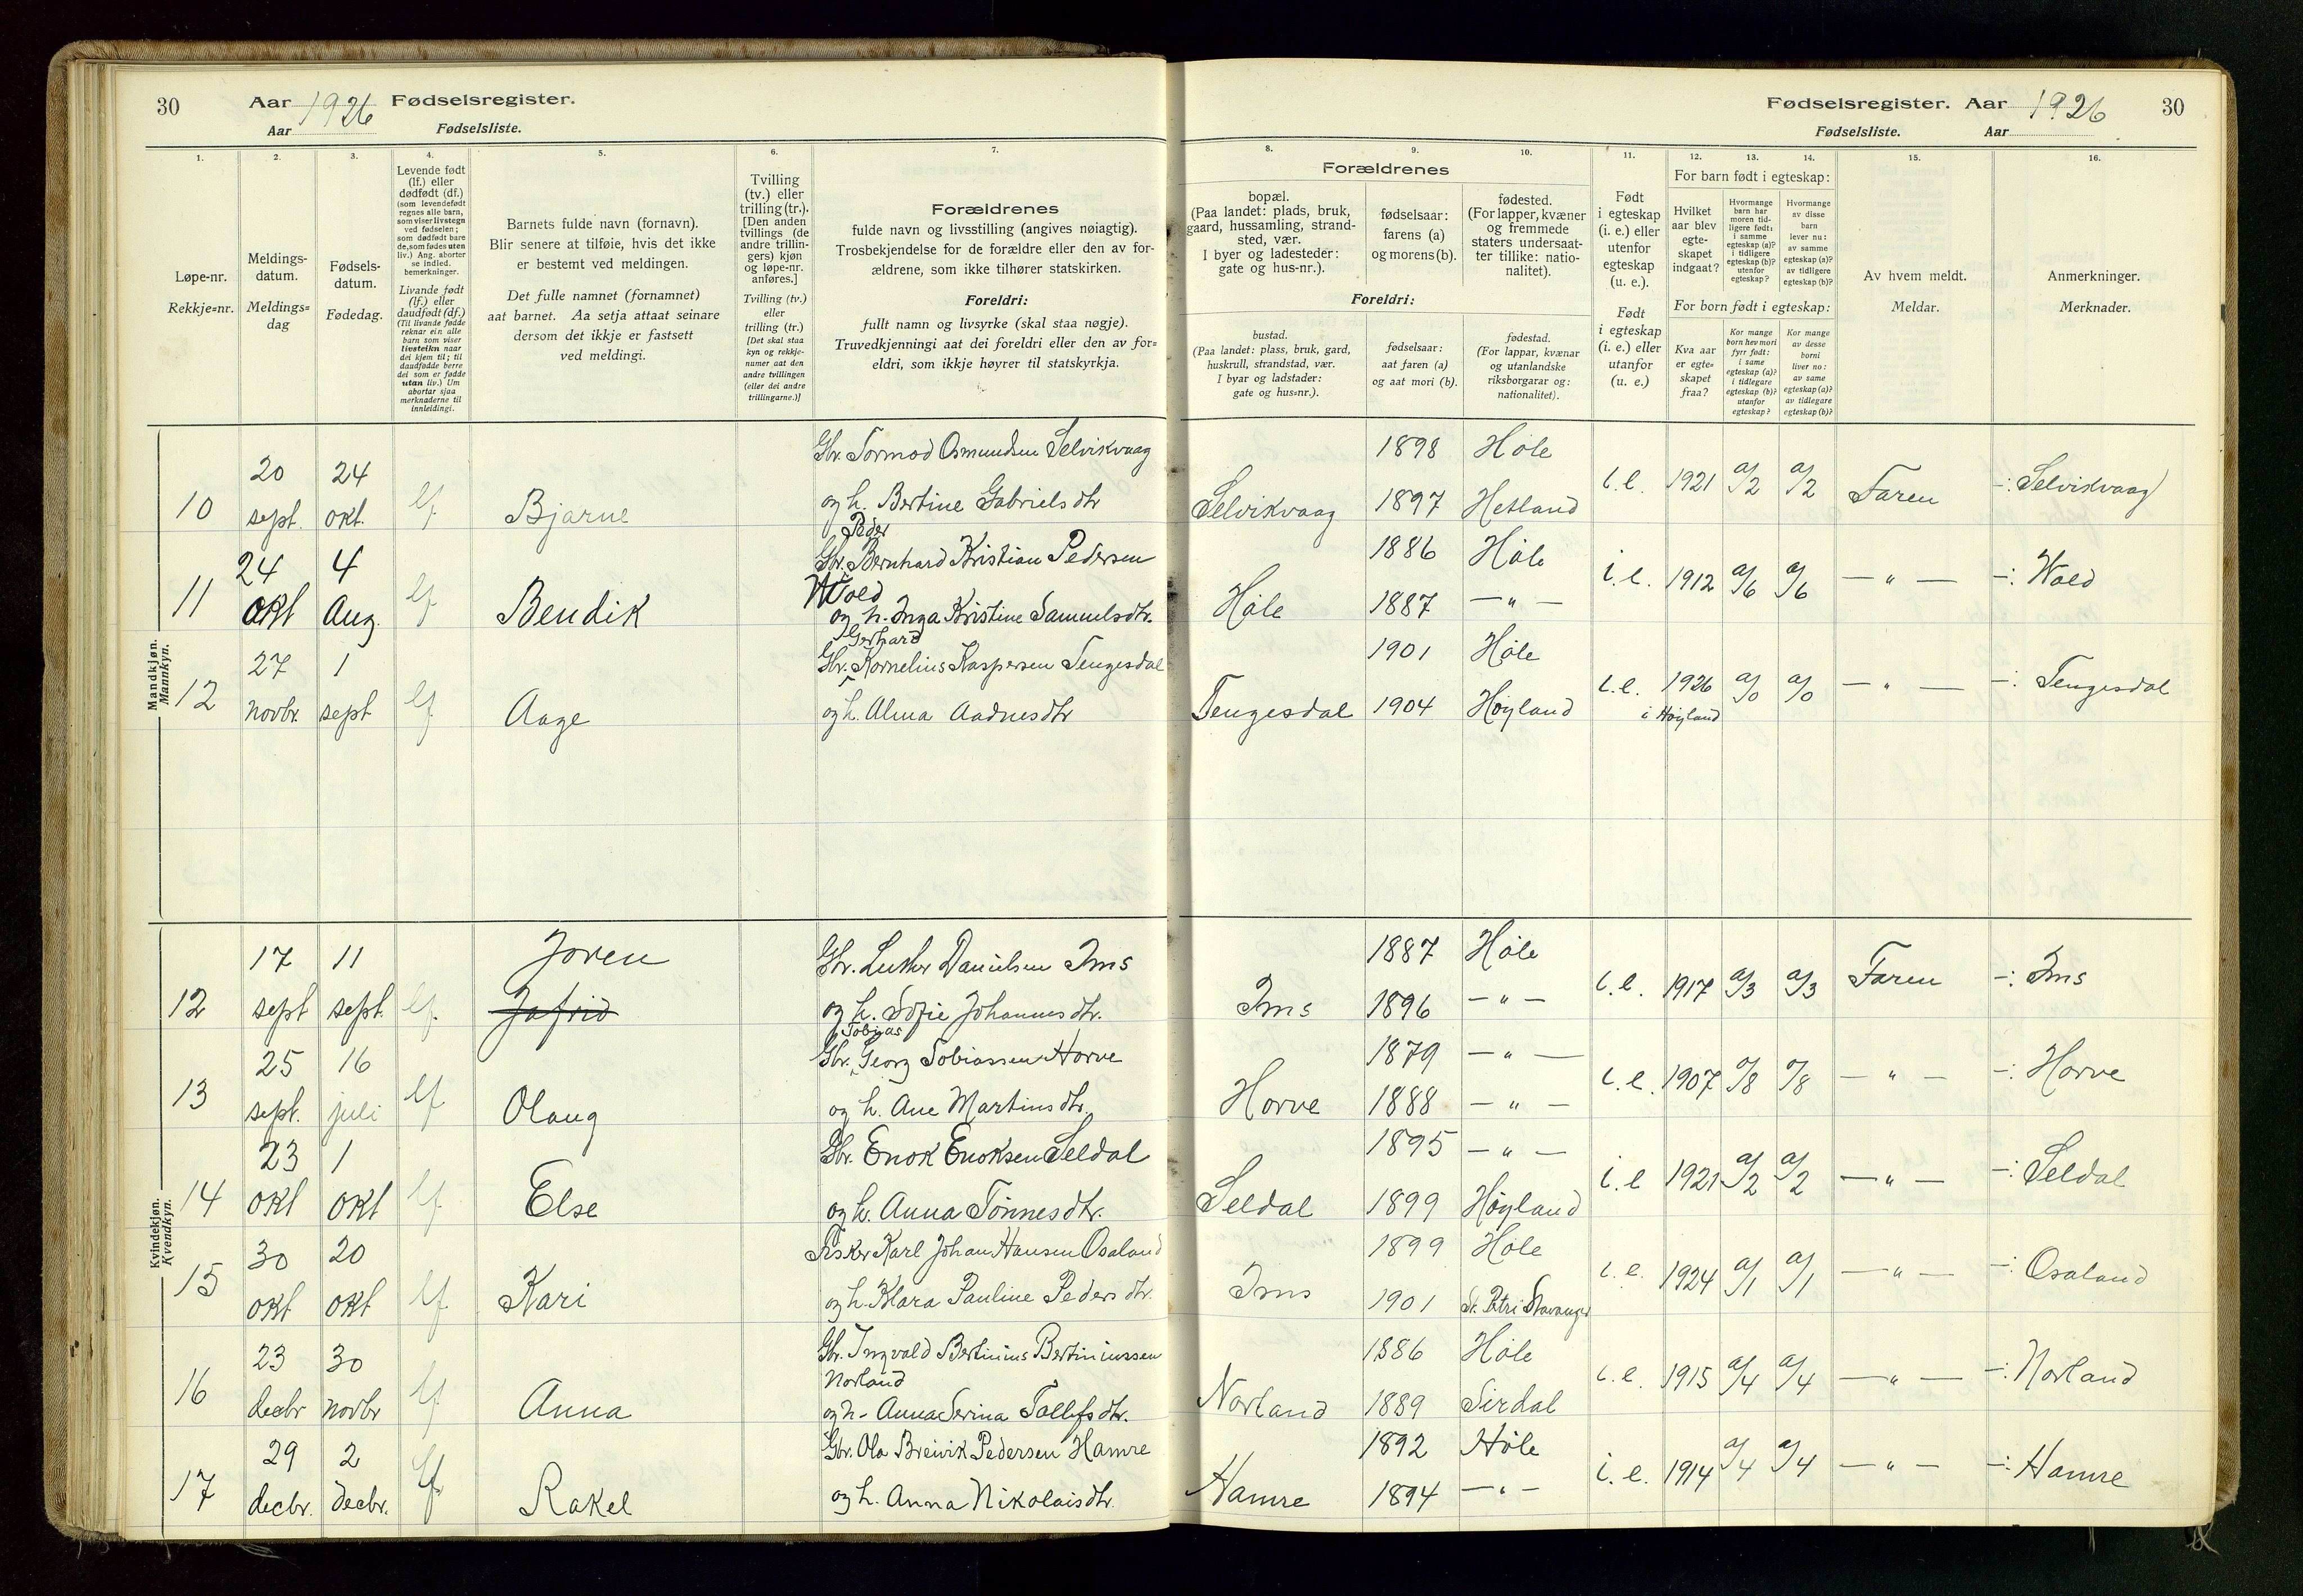 30 Aar 1926 Fødselsregister.
Aar Fødselsliste.
Fødselsregister. Aar 1926 30
Fødselsliste. Aar
1.
Løpe-nr.
Rekkje=nr.
2.
Meldings-
datum.
Meldings=
dag
3.
Fødsels-
datum.
Fødedag.
4.
Levende født
(lf.) eller
dødfødt (df.)
(som levendefødt
regnes alle barn,
som viser livstegn
ved fødselen;
som dødfødt bare
de, som fødes uten
liv.) Ang. aborter
se indled.
bemerkninger.
Livande født
(lf.) eller
daudfødt (df.)
(Til livande fødde
reknar ein alle
barn som viser
livsteikn naar
dei kjem til; til
daudfødde berre
dei som er fødde
utan liv.) Um
abortar sjaa
merknaderne til
innleidingi.
5.
Barnets fulde navn (fornavn).
Blir senere at tilføie, hvis det ikke
er bestemt ved meldingen.
Det fulle namnet (fornamnet)
aat barnet. Aa setja attaat seinare
dersom det ikkje er fastsett
ved meldingi.
6.
Tvilling
(tv.) eller
trilling (tr.).
[Den anden
tvillings (de
andre trillin-
gers) kjøn
og løpe-nr.
anføres.]
Tvilling (tv.)
eller
trilling (tr.)
[Det skal staa
kyn og rekkje-
numer aat den
andre tvillingen
(eller dei andre
trillingarne.)]
7.
Forældrenes
fulde navn og livsstilling (angives nøiagtig).
Trosbekjendelse for de forældre eller den av for-
ældrene, som ikke tilhører statskirken.
Foreldri:
fullt namn og livsyrke (skal staa nøgje).
Truvedkjenningi aat dei foreldri eller den av for=
eldri, som ikkje høyrer til statskyrkja.
Forældrenes
8.
bopæl.
(Paa landet: plads, bruk,
gaard, hussamling, strand-
sted, vær.
I byer og ladesteder:
gate og hus-nr.).
9.
fødselsaar:
farens (a)
og morens (b).
10.
fødested.
(For lapper, kvæner
og fremmede
staters undersaat-
ter tillike: natio-
nalitet).
Foreldri:
bustad.
(Paa landet: plass, bruk, gard,
huskrull, strandstad, vær.
I byar og ladstader:
gate og hus=nr.).
fødselsaar:
aat faren (a)
og aat mori (b).
fødestad.
(For lappar, kvænar
og utanlandske
riksborgarar og:
nationalitet).
11.
Født
i egteskap
(i. e.) eller
utenfor
egteskap
(u. e.).
Født
i egteskap
(i. e.) eller
utanfor
(u. e.)
For barn født i egteskap:
12.
Hvilket
aar blev
egte-
skapet
indgaat?
13.
Hvormange
barn har
moren tid-
ligere født:
i samme
egteskap (a)?
i tidligere
egteskap (b)?
utenfor
egteskap?
14.
Hvormange
av disse
barn
lever nu:
av samme
egteskap (a)?
av tidligere
egteskap (b)?
For born født i egteskap:
Kva aar
er egte=
skapet
fraa?
Kor mange
born hev mori
fyrr født:
i same
egteskap (a)?
i tidlegare
egteskap (b)?
utanfor
egteskap?
Kor mange
av desse
borni
liver no:
av same
egteskap (a)?
av tidlegare
egteskap (b)?
15.
Av hvem meldt.
Meldar.
16.
Anmerkninger.
Merknader.
Mandkjøn.
Mannkyn.
10 20 sept. 24 okt. lf. Bjarne Gbr. Tormod Osmundsen Selvikvaag
og h. Bertine Gabrielsdtr
Selvikvaag 1898 1897 Høle Hetland i.e. 1921 a/2 a/2 Faren -: Selvikvaag
11 24 okt 4 Aug. lf. Bendik Peder
Gbr. Bernhard Kristian Pedersen
Wold
og h. Inga Kristine Samuelsdtr.
Høle 1886 1887 Høle — " — i.e. 1912 a/6 a/6 — " — -: Wold
12 27 novbr. 1 sept lf. Aage Gerhard
Gbr. Kornelius Kaspersen Tengesdal
og h. Alma Aadnesdtr
Tengesdal 1901 1904 Høle Høyland i.e. 1926 i Høyland a/0 a/0 — " — -: Tengesdal
Kvindekjøn.
Kvendkyn.
12 17 sept 11 sept. lf. Joren
Jofrid
Gbr. Luther Danielsen Ims
og h. Sofie Johannesdtr.
Ims 1887 1896 Høle — " — i.e. 1917 a/3 a/3 Faren -: Ims
13 25 sept. 16 juli lf. Olaug Tobias
Gbr. Georg Tobiassen Horve
og h. Ane Martinsdtr.
Horve 1879 1888 — " — — " — i.e. 1907 a/8 a/8 — " — -: Horve
14 23 okt 1 okt lf. Else Gbr. Enok Enoksen Seldal
og h. Anna Tønnesdtr.
Seldal 1895 1899 — " — Høyland i.e 1921 a/2 a/2 — " — -: Seldal
15 30 okt 20 okt lf. Kari Fisker Karl Johan Hansen Osaland
og h. Klara Pauline Pedersdtr.
Ims 1899 1901 Høle St. Petri Stavanger i.e. 1924 a/1 a/1 — " — -: Osaland
16 23 decbr 30 novbr lf. Anna Gbr. Ingvald Bertinius Bertiniussen
Norland
og h. Anna Serina Tollefsdtr.
Norland 1886 1889 Høle Sirdal i.e. 1915 a/4 a/4 — " — -: Norland
17 29 decbr. 2 decbr. lf. Rakel Gbr. Ola Breivik Pedersen Hamre
og h. Anna Nikolaisdtr.
Hamre 1892 1894 Høle — " — i.e. 1914 a/4 a/4 — " — -: Hamre